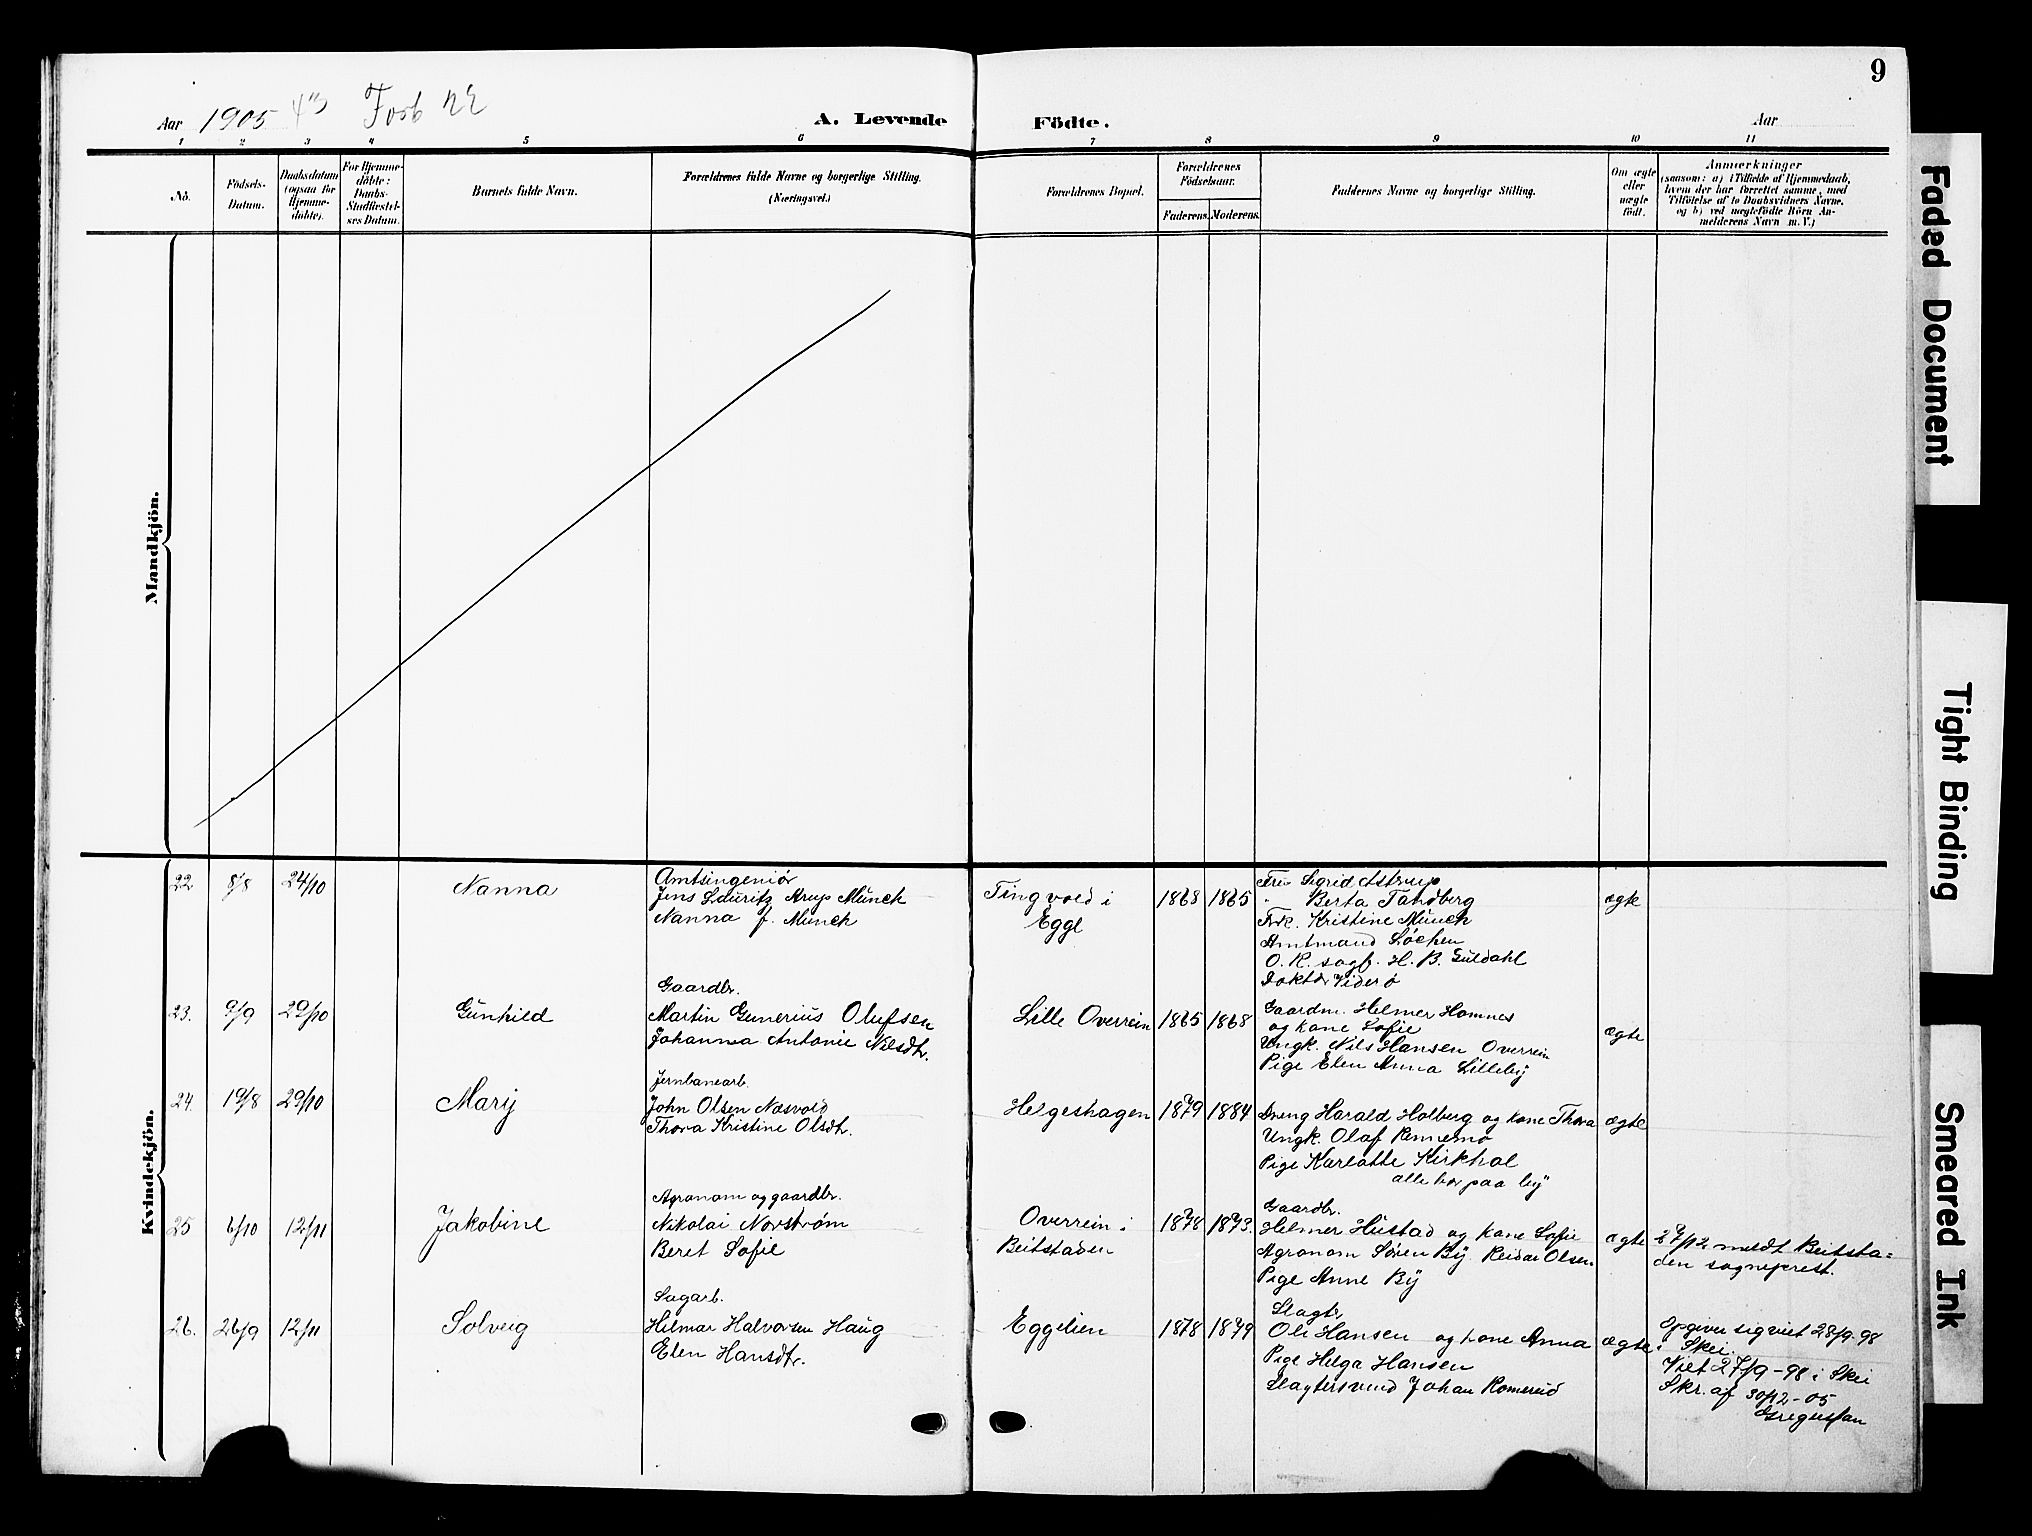 9
Aar 1905 43 Forb 22
A. Levende Födte.
Aar
1 2 3 4 5 6 7 8 9 10 11
No.
Födsels-Datum.
Daabsdatum (ogsaa for Hjemme-döbte).
For Hjemme-döbte: Daabs-Stadfæstel-ses Datum.
Barnets fulde Navn.
Forældrenes fulde Navne og borgerlige Stilling.
(Næringsvei.)
Forældrenes Bopæl.
Forældrenes Födselsaar.
Faderens. Moderens.
Faddernes Navne og borgerlige Stilling.
Om ægte eller uægte födt.
Anmærkninger
(saasom: a) i Tilfælde af Hjemmedaab,
hvem der har forrettet samme, med
Tilföielse af to Daabsvidners Navne,
og b) ved uægtefödte Börn An-
melderens Navn m. V.)
Mandkjön.
Kvindekjön.
22 8/8 24/10 Nanna
Amtsingeniør
Jens Lauritz Arup Münch
Nanna f. Münch
Tingvold i
Egge
1868 1865
Fru Sigrid Astrup
" Berta Tandberg
Frk. Kristine Münch
Amtmand Løchen
O. R. sagf. H. B. Guldahl
Doktor Viderø
ægte
23. 9/9 29/10 Gunhild
Gaardbr.
Martin Gunerius Olufsen
Johanna Antonie Nilsdtr.
Lille Overrein
1865 1868
Gaardm. Helmer Homnes
og kone Sofie
Ungk. Nils Hansen Overrein
Pige Elen Anna Lilleby
ægte
24. 19/8 29/10 Mary
Jernbanearb.
John Olsen Næsvold
Thora Kristine Olsdtr.
Helgeshagen
1879 1884
Harald Holberg og kone Thora
Ungk. Olaf Rennemo
Pige Karlotte Kirkhol
alle bor paa by
ægte
25 6/10 12/11 Jakobine
Agronom og gaardbr.
Nikolai Norstrøm
Beret Sofie
Overrein i
Beitstaden
1878 1873.
Gaardbr.
Helmer Hustad og kone Sofie
Agronom Søren By Reidar Olsen.
Pige Anne By
ægte
27/12 meldt Beitsta=
den sogneprest.
26. 26/9 12/11 Solveig
Sagarb.
Hilmar Halvorsen Haug
Elen Hansdtr.
Eggelien
1878 1879
Slagtr.
Ole Hansen og kone Anna
Pige Helga Hansen
Slagtersvend Johan Romerud
ægte
Opgiver sig viet 28/9-98
i Skei.
Viet 27/9-98 i Skei
Skr. af 30/12-05
Gregusson
Faded Document
Tight Binding
Smeared Ink